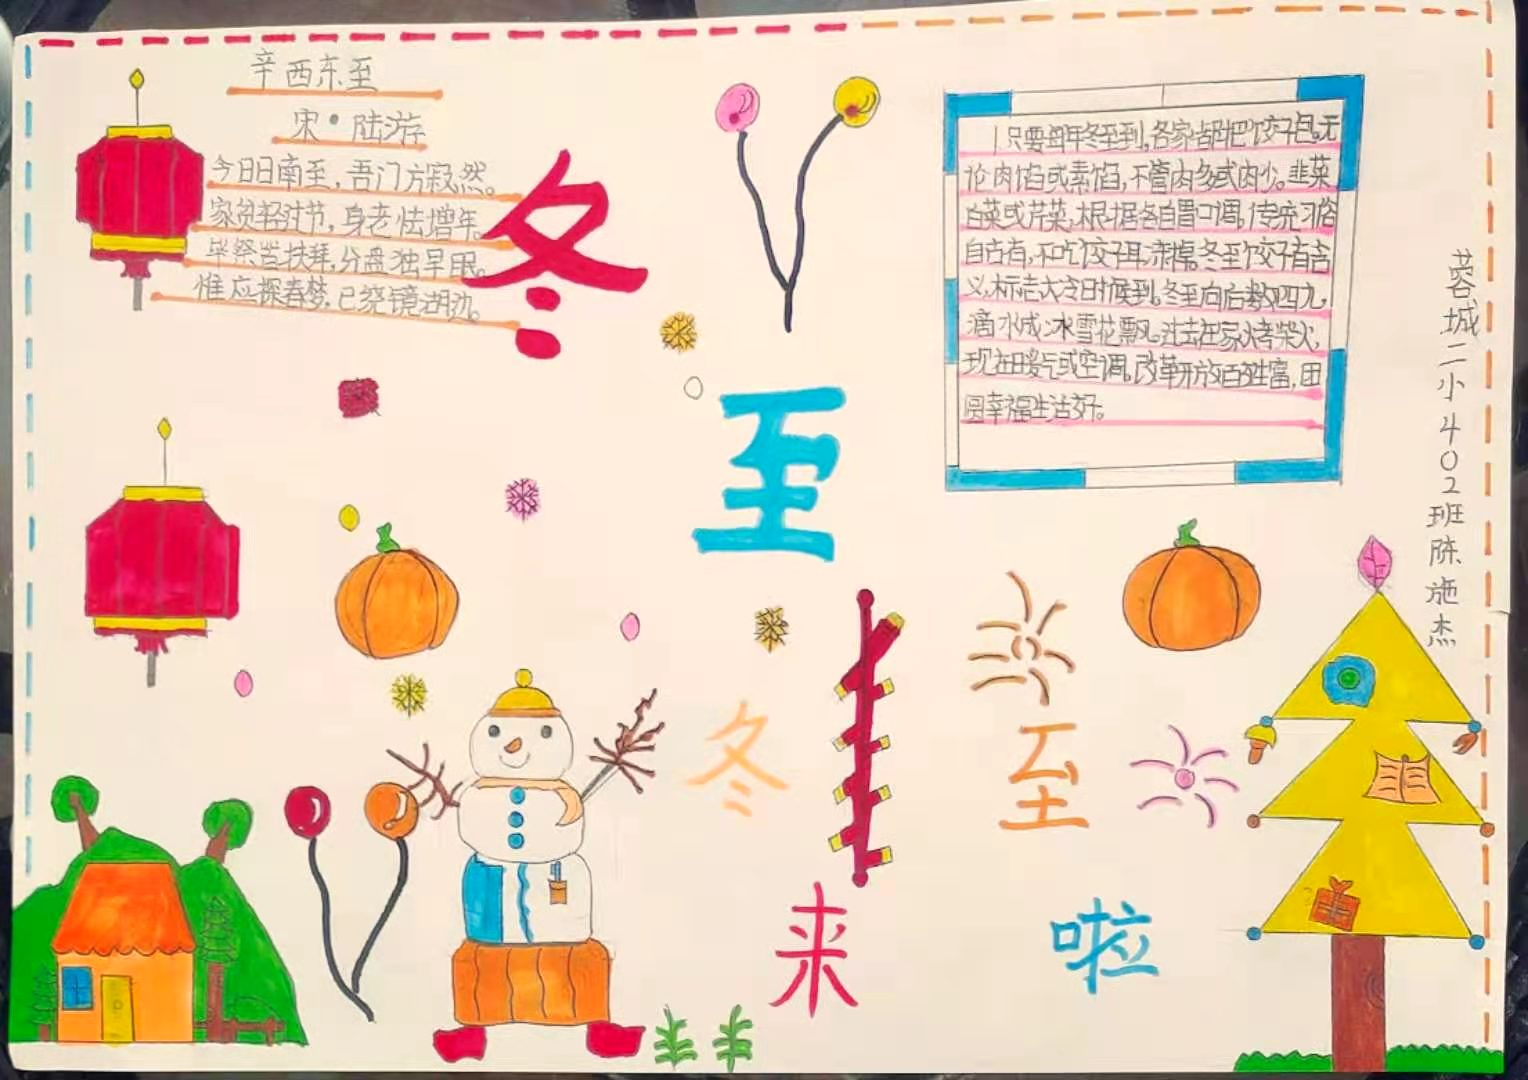 辛西东至
宋·陆游
今日日南至,吾门方寂然。
家贫轻过节,身老怯增年。
毕祭皆扶拜,分盘独早眠。
惟应探春梦,已绕镜湖边。
冬
至
只要每年冬至到,各家都把饺子包。无
论肉馅或素馅,不管肉多或肉少。韭菜
白菜或芹菜,根据各自胃口调。传统习俗
自古有,不吃饺子耳冻掉。冬至饺子有吉
义,标志大冷时候到。冬至向后数四九,
滴水成冰雪花飘。过去在家烤柴火,
现在暖气或空调。改革开放百姓富,团
圆幸福生活好。
蓉城二小402班陈施杰
冬至
来啦